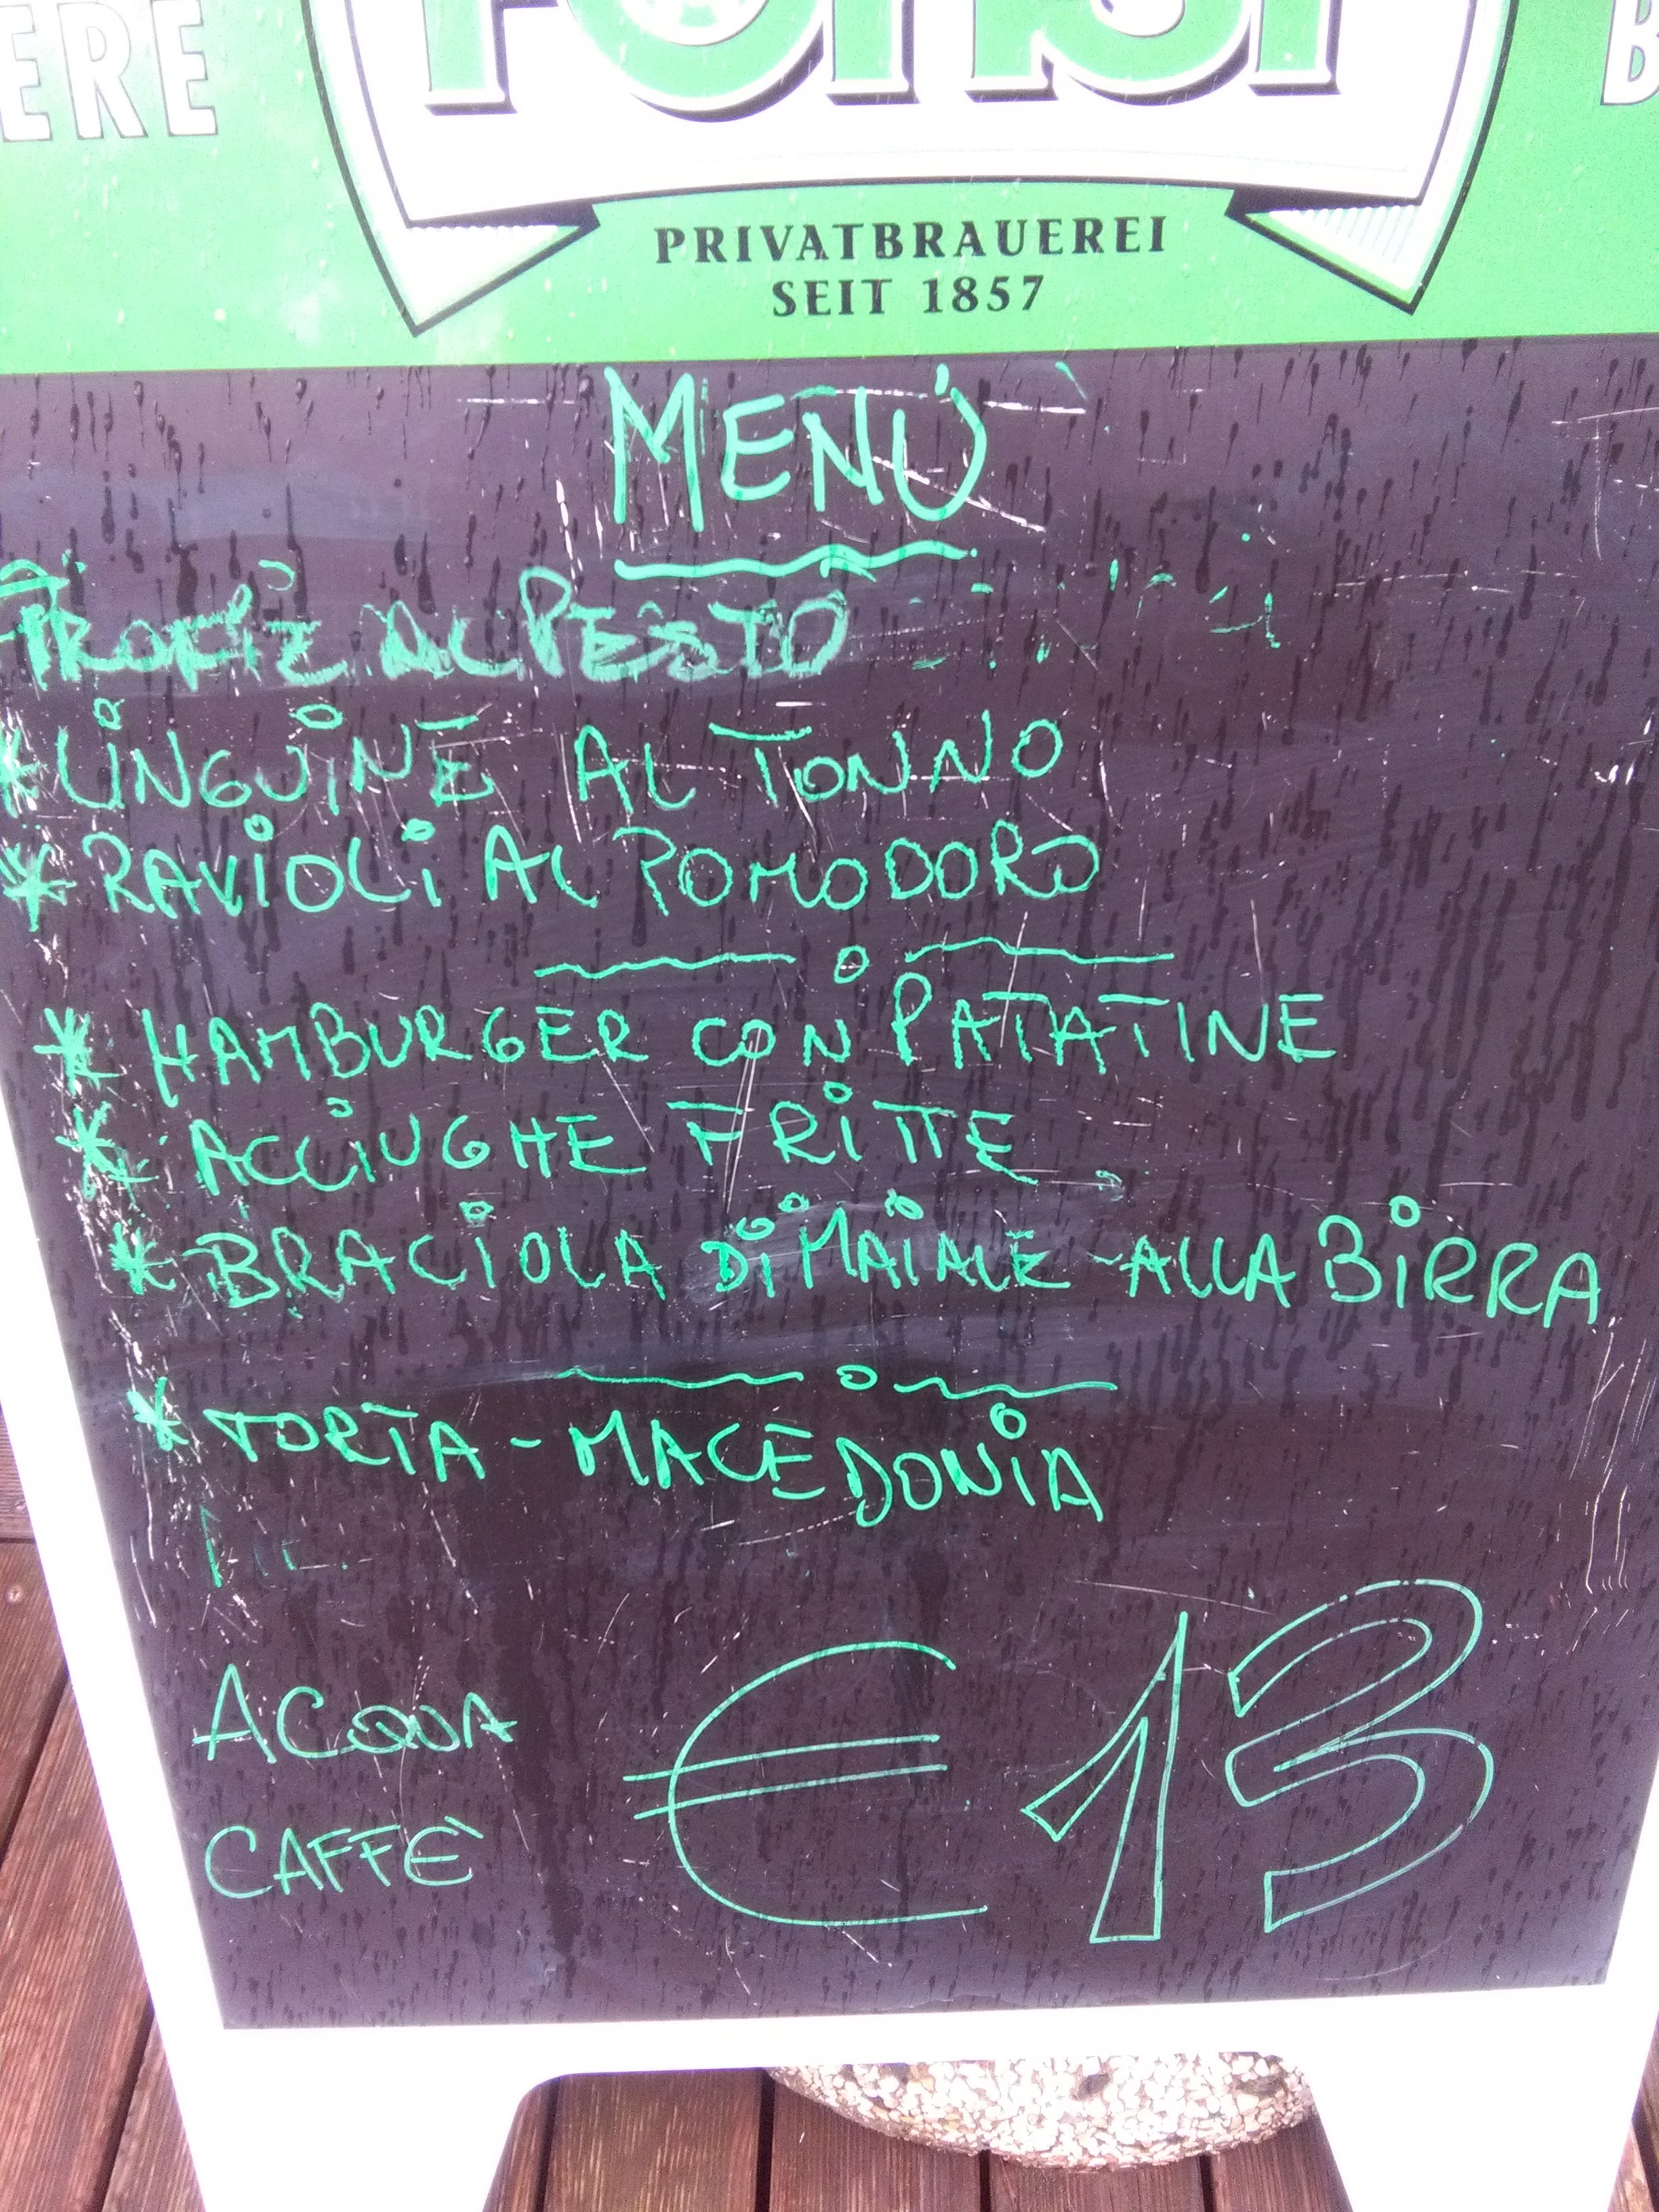 ERE FORST B
PRIVATBRAUEREI
SEIT 1857
MENÙ
TROFIE AL PESTO
* LINGUINE AL TONNO
* RAVIOLI AL POMODORO
* HAMBURGER CON PATATINE
* ACCIUGHE FRITTE
* BRACIOLA DI MAIALE ALLA BIRRA
* TORTA - MACEDONIA
ACQUA
CAFFÈ
€ 13